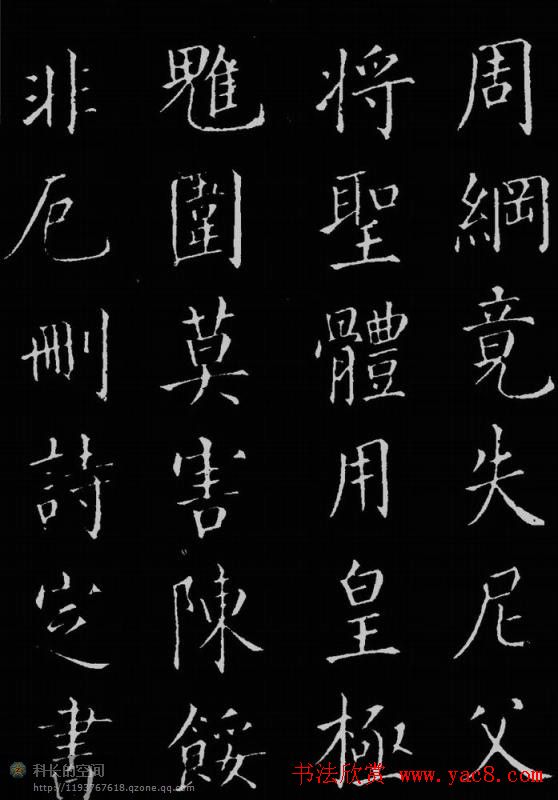 周綱竟失尼父
将聖體用皇極
魋圍莫害陳餒
非厄刪詩定書
科长的空间
http://1193767618.qzone.qq.com
书法欣赏 www.yac8.com